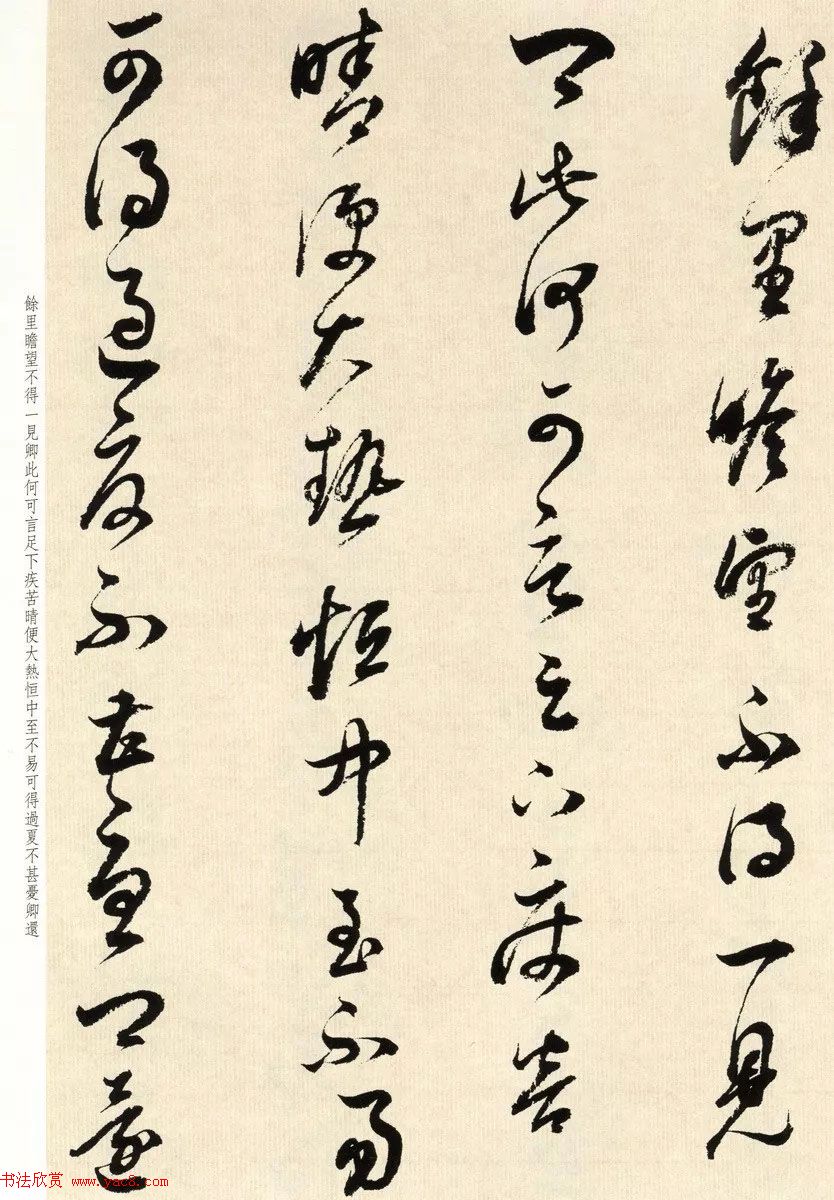 餘里瞻望不得一見
卿此何可言足下疾苦
晴便大熱恒中至不易
可得過夏不甚憂卿還
餘里瞻望不得一見卿此何可言足下疾苦晴便大熱恒中至不易可得過夏不甚憂卿還
书法欣赏 www.yac8.com